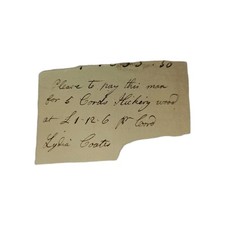 Please to pay this man
for 5 Cords Hickory wood
at £1-12-6 pr Cord
Lydia Coates